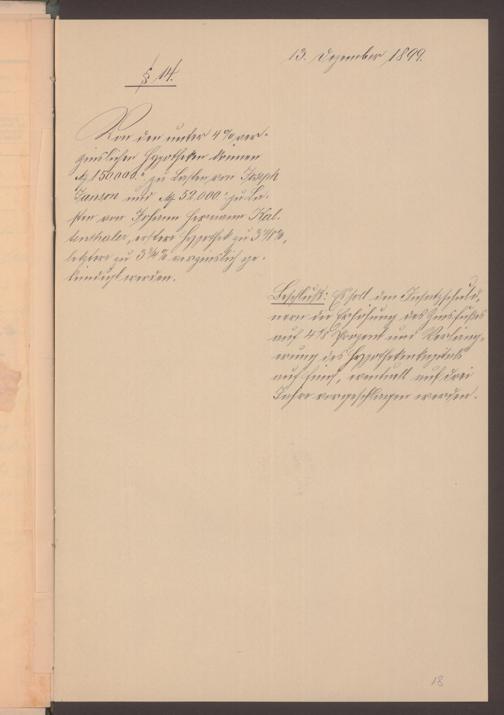 13. Dezember 1899.
§ 14.
Von den unter 4 % ver-
zinslichen Hypotheken können
M 150 000.- zu Lasten von Joseph
Janson und M 52.000.- zu La-
sten von Johann Hermann Kal-
tenthaler, erstere Hypothek zu 3
letztere zu 3 verzinslich ge-
kündigt werden.
Beschluß: Es soll den Insatzschuld-
nern die Erhöhung des Zinsfußes
auf 4 Prozent und Verlänge-
rung des Hypothekenkapitals
auf fünf, eventuell auf drei
Jahre vorgeschlagen werden.
18